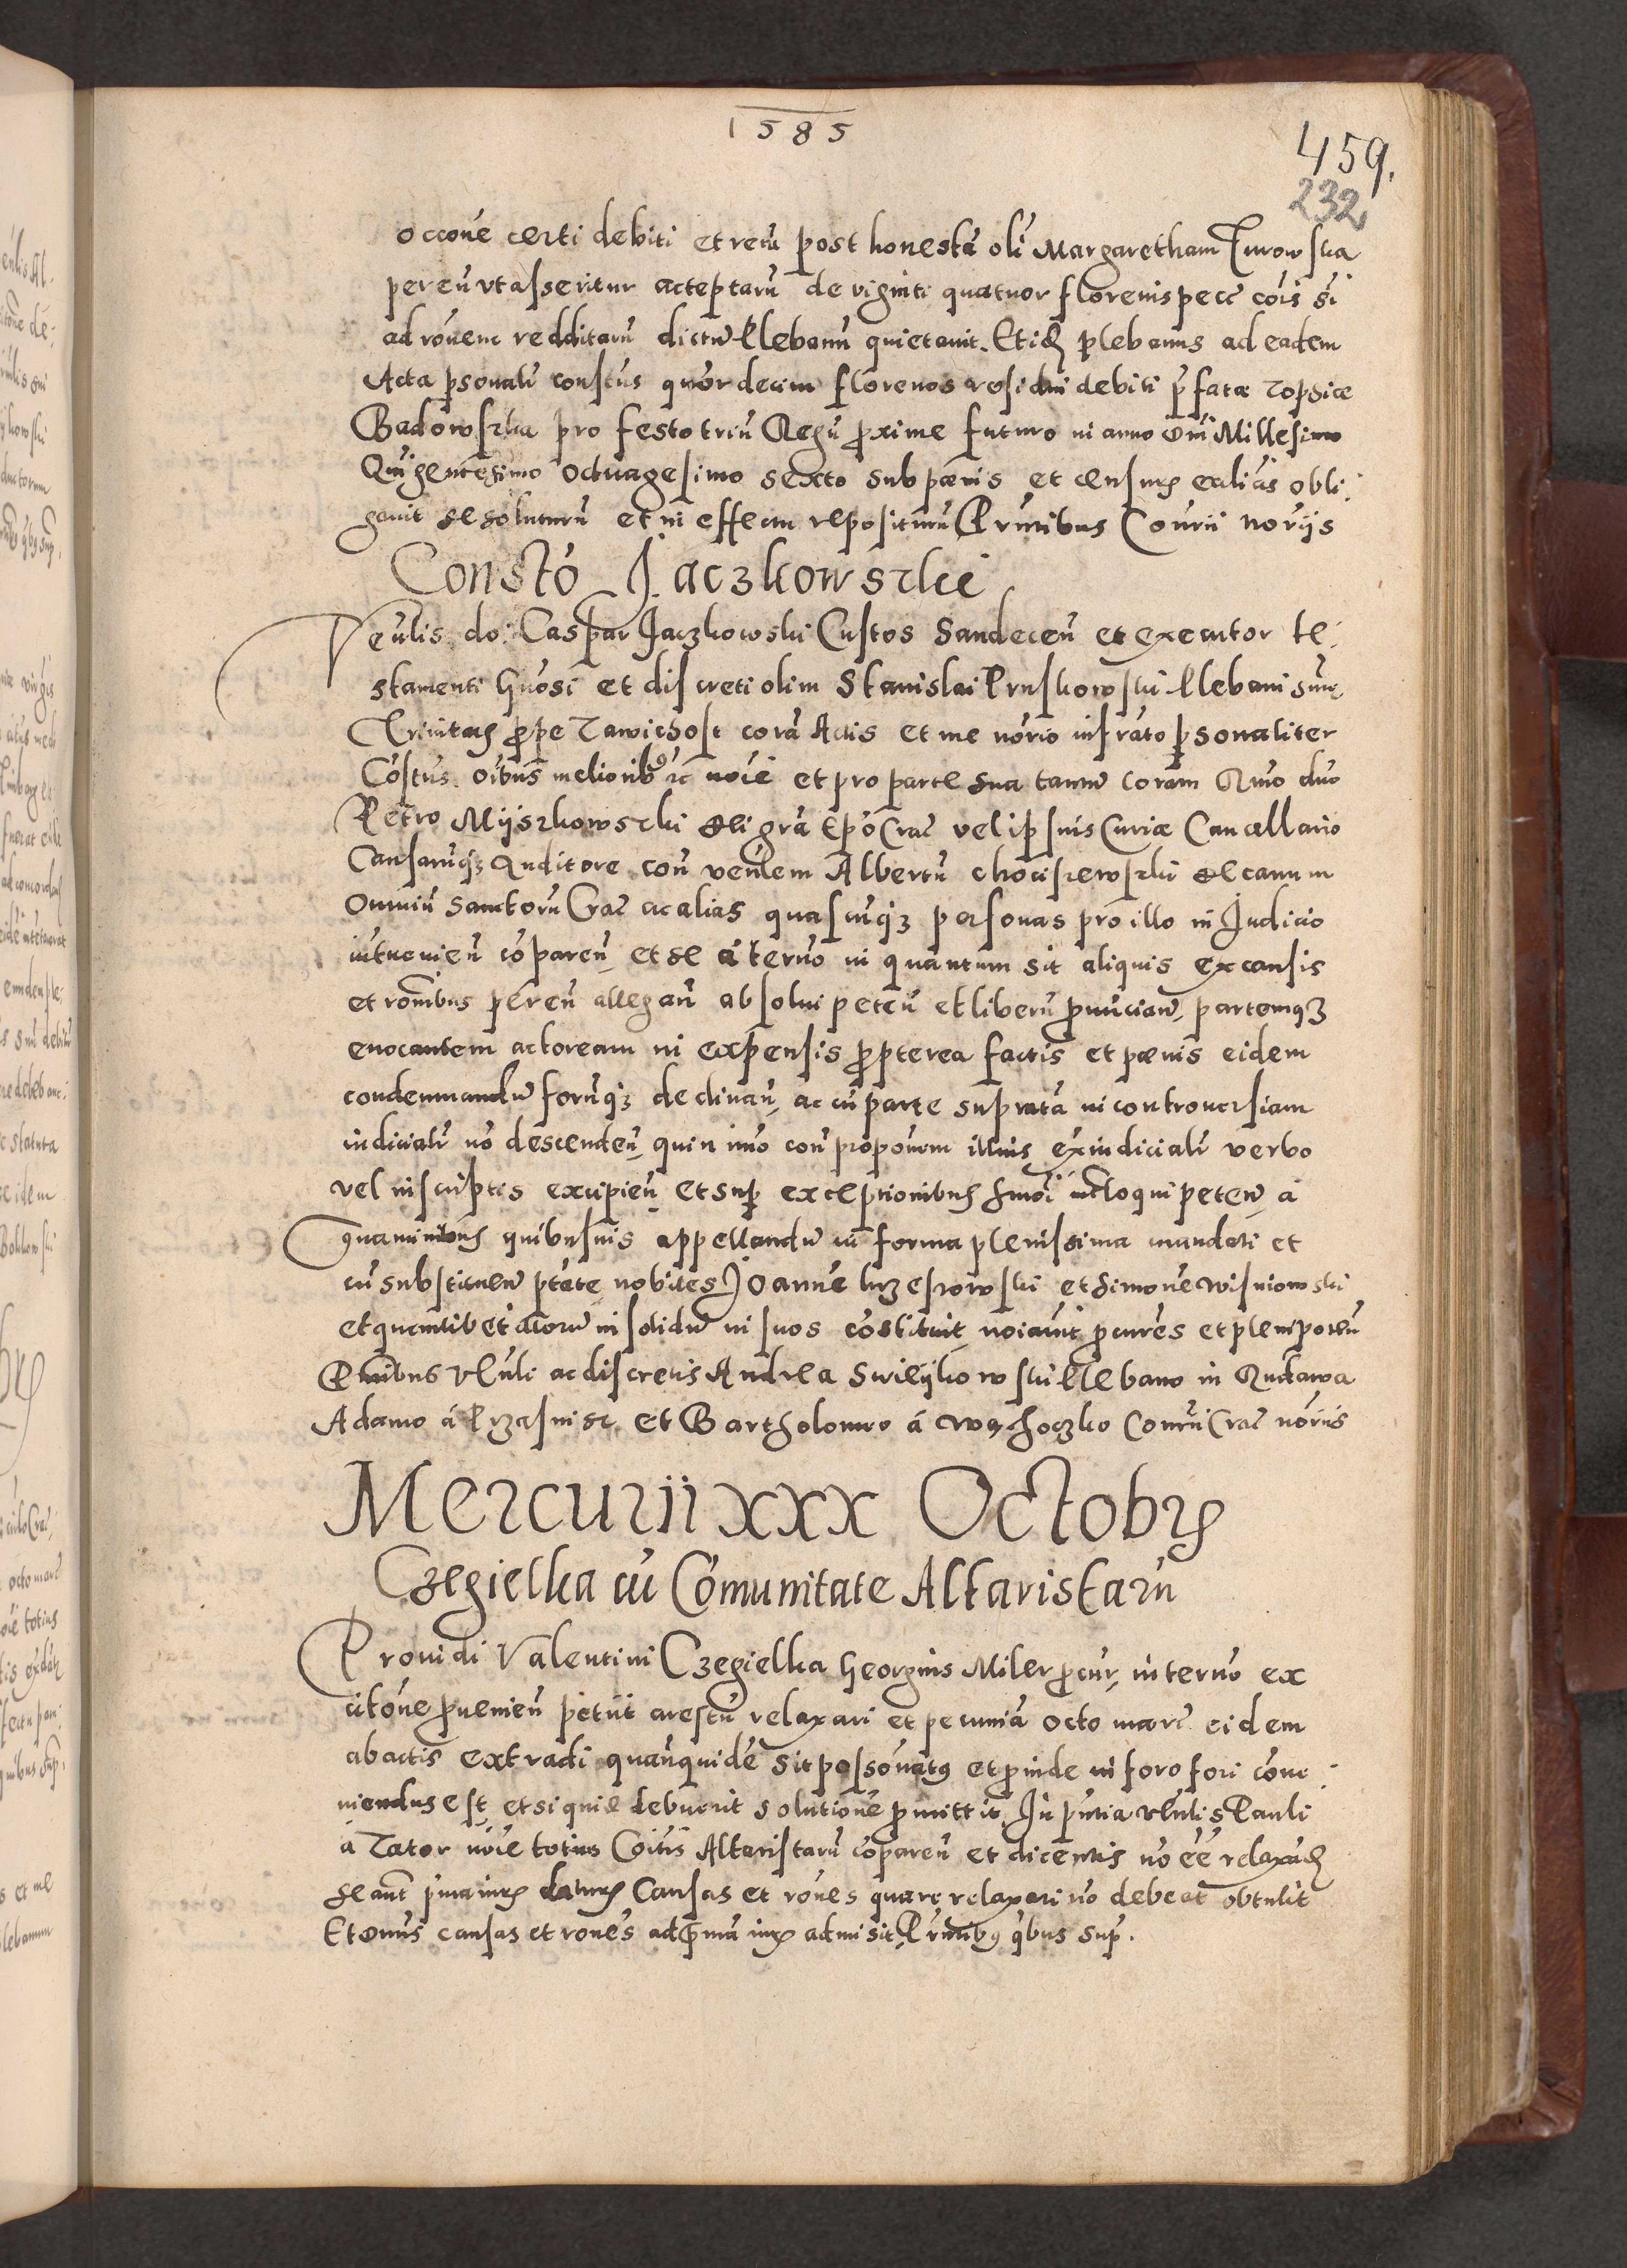 1585
459.
232
occoñe certi debiti et reru post honestã oli Margaretham Turowska
per eu vt asseritur acceptaru de viginti quatuor florenis pecc cois si
ad roñem redditaru dictu Plebanu quietauit. Et id plebanus ad eadem
Acta psonalr constus quor decim florenos residui debiti pfatæ Zophiæ
Badowszka pro festo triu Regu pxime futuro in anno Dni Millesimo
Quigentesimo octuagesimo sexto sub pœnis et censuris eccliacis obli:
gauit se soluturu et in effectu repositum Pntibus Consrii noriis
Constõ Jaczkowszkie
Veñlis do: Caspar Jaczkowski Custos Sandecen et executor te:
stamenti Gnosi et discreti olim Stanislai Pruskowski Plebani sum
Trinitatis pope Zawichost corã Actis et me norio infrato psonaliter
Cõstus. oibus melioribus etc noie et pro parte sua tanm coram Rmo dno
Petro Myszkowszki Dei gra Epo Crac vel ipsius Curiæ Cancellario
Causarumq Auditore con veñlem Albertu chociszewszki Decanum
Omniu Sanctoru Crac ac alias quascuq personas pro illo in Judicio
interuenien cõparen et se a termo in quantum sit aliquis ex causis
et ronibus pferen allegan absolui peten et liberu pnuncian, partemq
euocantem actoream in expensis ppterea factis et pœnis eidem
condemnandu forumq declinan, ac cu parte suprata in controuersiam
iudicialr no descenden quin imo con proponem illius exiudicialr verbo
vel in scriptis excipien et sup exceptionibus hmoi interloqui peten a
grauaminibus quibusuis appellandu in forma plenissima mandati et
cu substituen ptate nobiles Joanne krzeszowski et Simone Wisniowski
et quemlibet actoru in solidu in suos cõstituit noiauit pcures et plenipoten
Pntibus Vñli ac discretis Andrea Swieykowski Plebano in Rudawa
Adamo á Przasnisz et Bartholomeo á Wochoczko Consrii Crac noriis
Mercurii xxx Octobris
Czegielka cu Cõmunitate Altaristaru
Prouidi Valentini Czegielka Georgius Miler pcur, in termo ex
citõne puenien petiit arestu relaxari et pecuniã octo marc eidem
ab actis extradi quanquide sit possonatus et pinde in foro fori cõue:
niendus est, et si quid debuerit solutione pmittit. In pntia vñlis Pauli
á Zator noie totius Coitis Altaristaru cõparen et dicentis no ee relaxad
se ant pma iuris daturus Causas et rones quare relaxari no debeat obtulit
Et Dnus causas et rones ad pmã iuris admisit. Pntibus qbus sup.